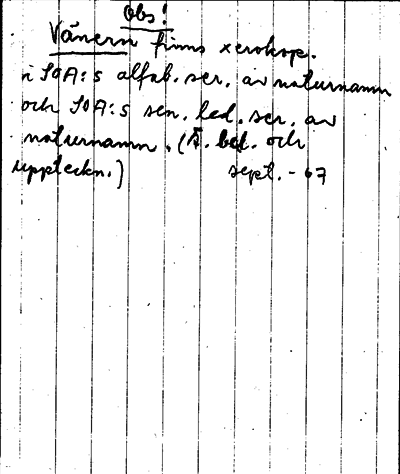 Obs!
Vänern finns xerokop.
i SOA:s alfab. ser. av naturnamn
och SOA:s sen. led. ser. av
naturnamn. (Ä. bel. och
uppteckn.) sept. -67